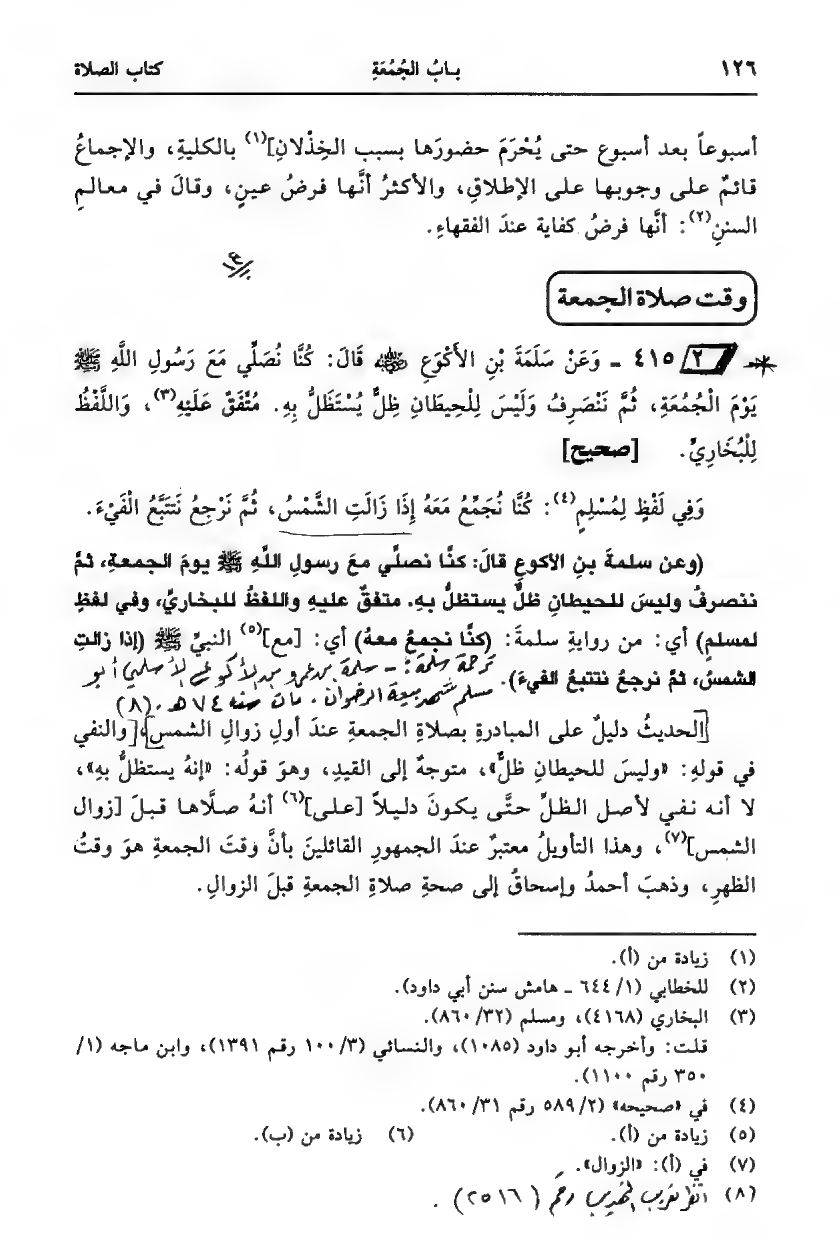 ١٢٦ بابُ الجُمُعَةِ كتاب الصلاة
أسبوعاً بعد أسبوع حتى يُحْرَمَ حضورَها بسبب الخِذْلانِ](١) بالكليةِ، والإجماعُ
قائمٌ على وجوبها على الإطلاقِ، والأكثرُ أنَّها فرضُ عينٍ، وقالَ في معالمِ
السننِ(٢): أنَّها فرضُ كفاية عندَ الفقهاءِ.
وقت صلاة الجمعة
٢ ٤١٥ ـ وَعَنْ سَلَمَةَ بْنِ الأَكْوَعِ رضي الله عنه قَالَ: كُنَّا نُصَلِّي مَعَ رَسُولِ اللَّهِ ﷺ
يَوْمَ الْجُمُعَةِ، ثُمَّ نَنْصَرِفُ وَلَيْسَ لِلْحِيطَانِ ظِلٌّ يُسْتَظَلُّ بِهِ. مُتَّفَقٌ عَلَيْهِ(٣)، وَاللَّفْظُ
لِلْبُخَارِيِّ. [صحيح]
وَفِي لَفْظٍ لِمُسْلِمٍ(٤): كُنَّا نُجَمِّعُ مَعَهُ إِذَا زَالَتِ الشَّمْسُ، ثُمَّ نَرْجِعُ نَتَتَبَّعُ الْفَيْءَ.
(وعن سلمةَ بنِ الأكوعِ قالَ: كنَّا نصلِّي معَ رسولِ اللَّهِ ﷺ يومَ الجمعةِ، ثمَّ
ننصرفُ وليسَ للحيطانِ ظلٌّ يستظلُّ بهِ. متفقٌ عليهِ واللفظُ للبخاريِّ، وفي لفظٍ
لمسلمٍ) أي: من روايةِ سلمةَ: (كنَّا نجمعُ معهُ) أي: [مع](٥) النبيِّ ﷺ (إذا زالتِ
الشمسُ، ثمَّ نرجعُ نتتبعُ الفيءَ). ترجمة سلمة: ـ سلمة بن عمرو بن الأكوع الأسلمي أبو
مسلم شهد بيعة الرضوان. مات سنة ٧٤ هـ. (٨)
[الحديثُ دليلٌ على المبادرةِ بصلاةِ الجمعةِ عندَ أولِ زوالِ الشمسِ]،[والنفي
في قولهِ: «وليسَ للحيطانِ ظلٌّ»، متوجهٌ إلى القيدِ، وهوَ قولُه: «إنهُ يستظلُّ بهِ»،
لا أنه نفي لأصل الظلِّ حتَّى يكونَ دليلاً [على](٦) أنهُ صلَّاها قبلَ [زوال
الشمس](٧)، وهذا التأويلُ معتبرٌ عندَ الجمهورِ القائلينَ بأنَّ وقتَ الجمعةِ هوَ وقتُ
الظهرِ، وذهبَ أحمدُ وإسحاقُ إلى صحةِ صلاةِ الجمعةِ قبلَ الزوالِ.
(١) زيادة من (أ).
(٢) للخطابي (١/ ٦٤٤ ـ هامش سنن أبي داود).
(٣) البخاري (٤١٦٨)، ومسلم (٣٢/ ٨٦٠).
قلت: وأخرجه أبو داود (١٠٨٥)، والنسائي (٣/ ١٠٠ رقم ١٣٩١)، وابن ماجه (١/
٣٥٠ رقم ١١٠٠).
(٤) في «صحيحه» (٢/ ٥٨٩ رقم ٣١/ ٨٦٠).
(٥) زيادة من (أ). (٦) زيادة من (ب).
(٧) في (أ): «الزوال».
(٨) انظر تقريب التهذيب رقم (٢٥١٦).